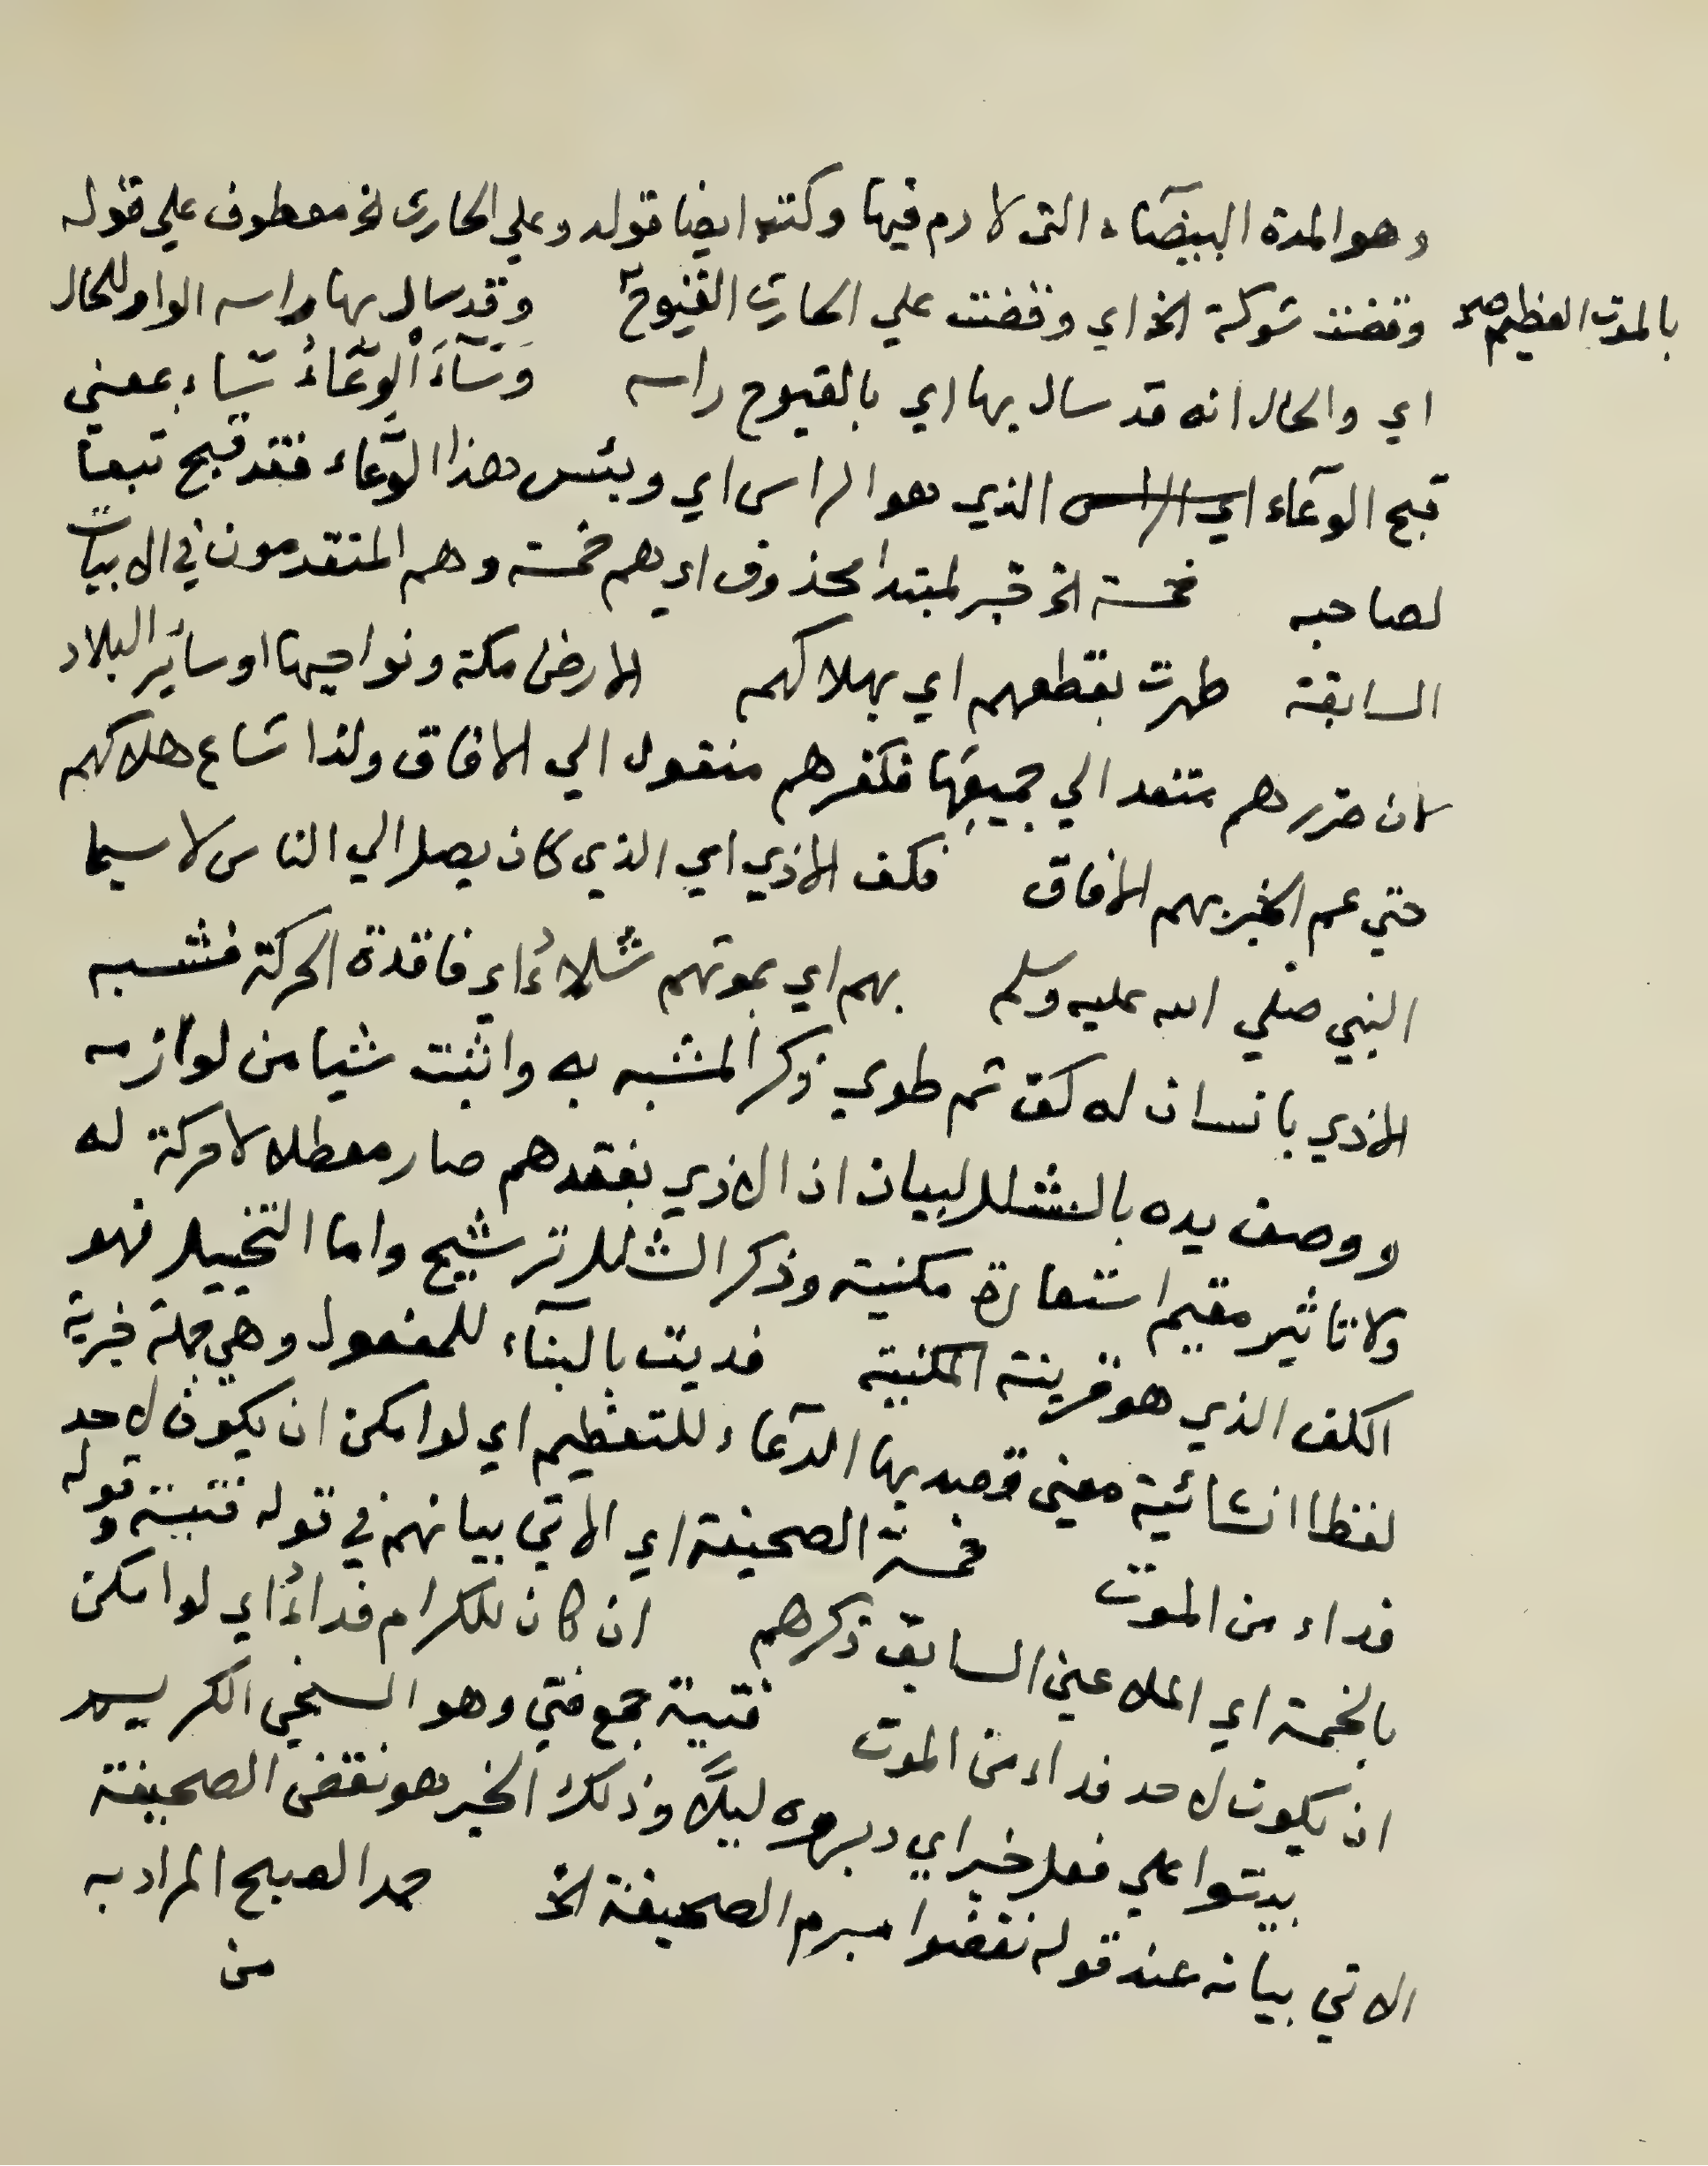 وهو المدة البيضآء التى لا دم فيها وكتب ايضا قوله وعلي الحارث الخ معطوف علي قوله
وقضت شوكة الخ اي وقضت علي الحارث القيوح وقد سال بها راسه الواو للحال
بالموت العظيم صح
اي والحال انه قد سال بها اي بالقيوح راسه وَسَآءَ الْوِعَاءُ سَاء بمعني
قبح الوعآء اي الراس الذي هو الراس اي وبئس هذا الوِّعاء فقد قبح تبعا
لصاحبه خمسة الخ خبر لمبتدا محذوف اي هم خمسة وهم المتقدمون في الابيات
السابقة طهرت بقطعهم اي بهلاكهم الارض مكة ونواحيها او سائر البلاد
لان ضررهم متعد الي جميعها فكفرهم منقول الي الافاق ولذا شاع هلاكهم
حتي عم الخبر بهم الافاق فكف الاذي اي الذي كان يصل الي الناس لا سيما
النبي صلي الله عليه وسلم بهم اي بموتهم شلاءُ اي فاقدة الحركة فشبه
الاذي بانسان له كف ثم طوي ذكر المشبه به واثبت شيا من لوازمه
ووصف يده بالشلل لبيان ان الاذي بفقدهم صار معطلا لا حركة له
ولا تاثير مقيم استعارة مكنية وذكر الشلل ترشيح واما التخييل فهو
الكف الذي هو قرينة المكنية فديت بالبنآء للمفعول وهي جملة خبرية
لفظا انشائية معني قصد بها الدعآء للتعظيم اي لو امكن ان يكون لاحد
فداء من الموت خمسة الصحيفة اي الاتي بيانهم في قوله فتية وقوله
بالخمسة اي الملاعين السابق ذكرهم ان كان للكرام فداءُ اي لو امكن
ان يكون لاحد فداء من الموت فتية جمع فتي وهو السخي الكريم
بيتوا علي فعل خير اي دبروه ليلًا وذلك الخير هو نقض الصحيفة
الاتي بيانه عند قوله نقضوا مبرم الصحيفة الخ حمد الصبح المراد به
من